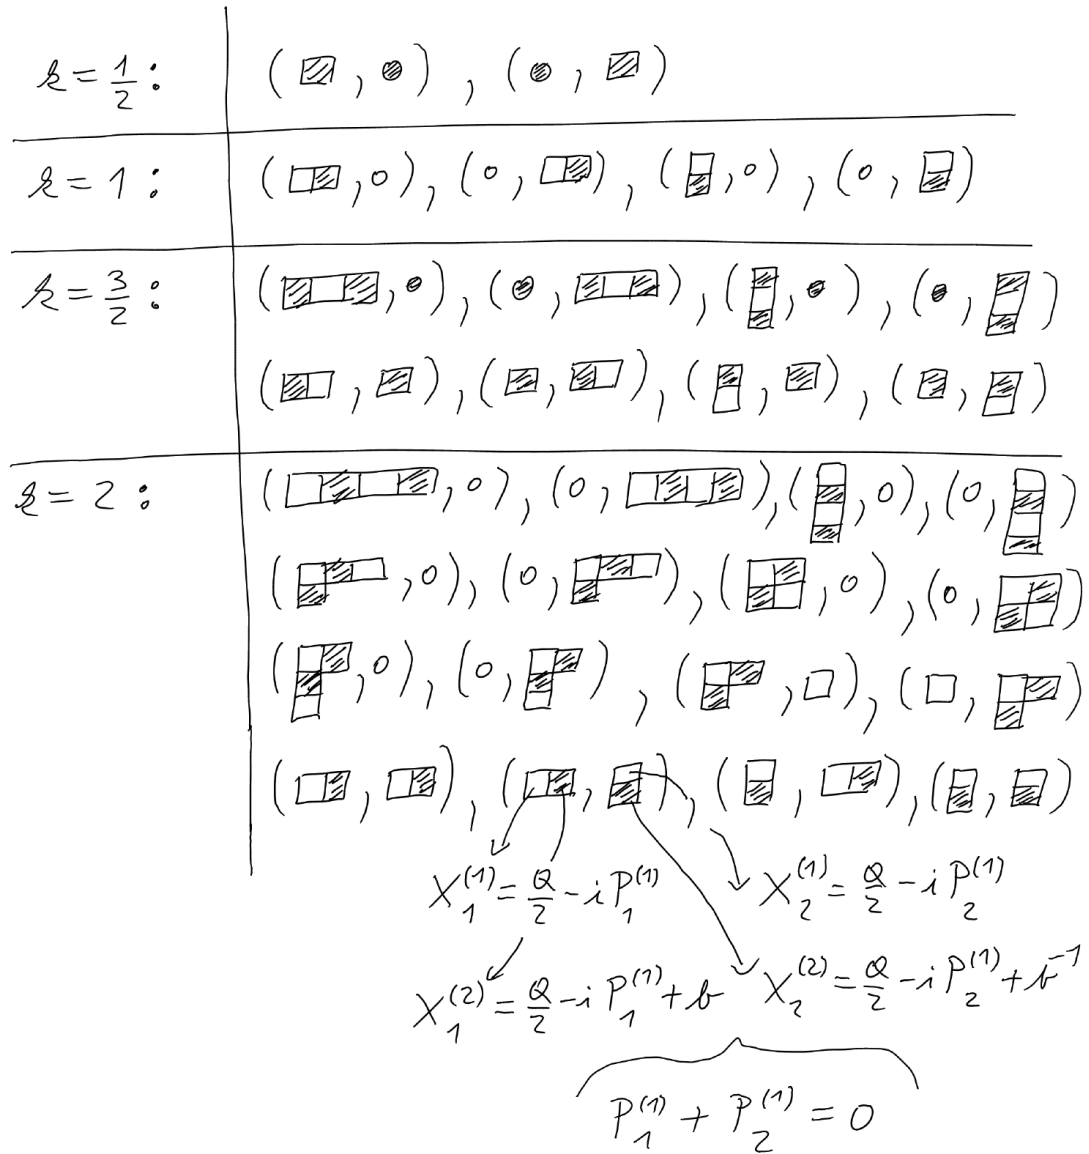 k = 1/2 : ( , ) , ( , )
k = 1 : ( , 0 ) , ( 0 , ) , ( , 0 ) , ( 0 , )
k = 3/2 : ( , ) , ( , ) , ( , ) , ( , )
( , ) , ( , ) , ( , ) , ( , )
k = 2 : ( , 0 ) , ( 0 , ) , ( , 0 ) , ( 0 , )
( , 0 ) , ( 0 , ) , ( , 0 ) , ( 0 , )
( , 0 ) , ( 0 , ) , ( , ) , ( , )
( , ) , ( , ) , ( , ) , ( , )
X₁⁽¹⁾ = Q/2 - i P₁⁽¹⁾ X₂⁽¹⁾ = Q/2 - i P₂⁽¹⁾
X₁⁽²⁾ = Q/2 - i P₁⁽¹⁾ + b X₂⁽²⁾ = Q/2 - i P₂⁽¹⁾ + b⁻¹
P₁⁽¹⁾ + P₂⁽¹⁾ = 0